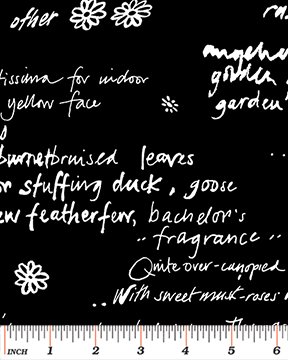 other
angelica
golden
garden
tissima for indoor
yellow face
burnet bruised leaves
or stuffing duck, goose
ew featherfew, bachelor's
.. fragrance ..
Quite over-canopied
.. With sweet musk-roses
INCH 1 2 3 4 5 6